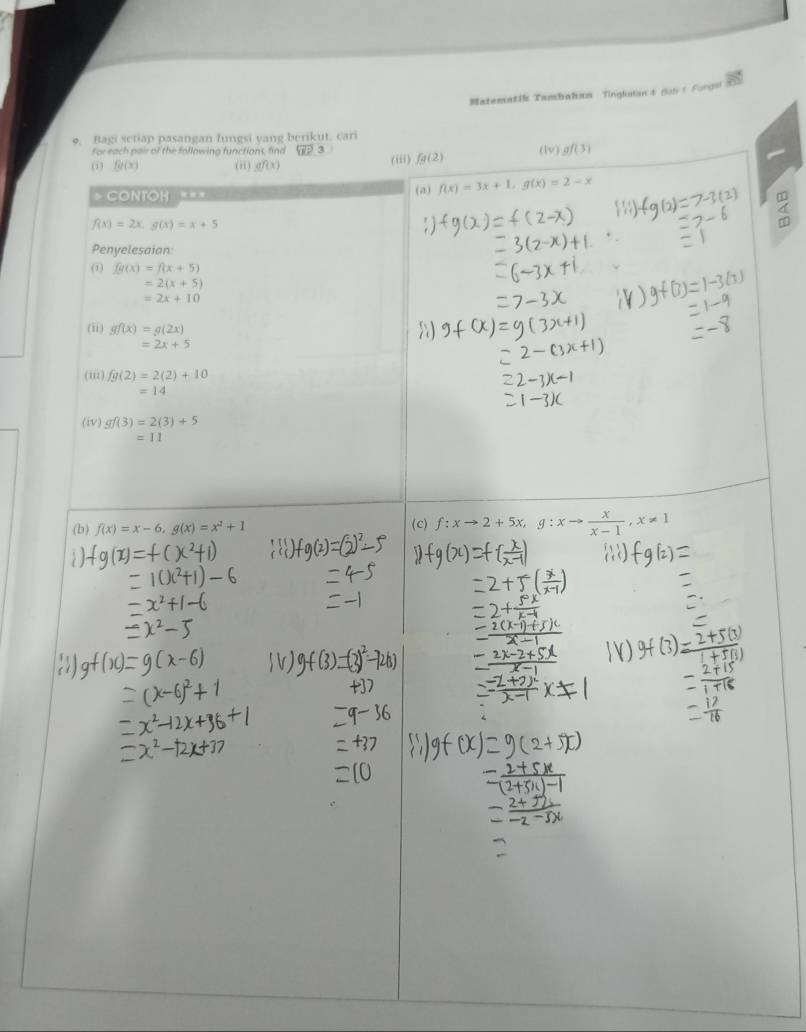 Matematik Tambahan Tingkatan 4 Bab 1 Fungsi
BAB 1
9. Bagi setiap pasangan fungsi yang berikut, cari
For each pair of the following functions, find TP 3
(i) fg(x) (ii) gf(x) (iii) fg(2) (iv) gf(3)
CONTOH
f(x) = 2x, g(x) = x + 5
Penyelesaian:
(i) fg(x) = f(x + 5)
= 2(x + 5)
= 2x + 10
(ii) gf(x) = g(2x)
= 2x + 5
(iii) fg(2) = 2(2) + 10
= 14
(iv) gf(3) = 2(3) + 5
= 11
(a) f(x) = 3x + 1, g(x) = 2 − x
i) fg(x) = f(2-x)
= 3(2-x)+1
= 6-3x+1
= 7-3x
ii) gf(x) = g(3x+1)
= 2-(3x+1)
= 2-3x-1
= 1-3x
iii) fg(2) = 7-3(2)
= 7-6
= 1
iv) gf(3) = 1-3(3)
= 1-9
= -8
(b) f(x) = x − 6, g(x) = x² + 1
i) fg(x) = f(x²+1)
= 1(x²+1)-6
= x²+1-6
= x²-5
ii) gf(x) = g(x-6)
= (x-6)²+1
= x²-12x+36+1
= x²-12x+37
iii) fg(2) = (2)²-5
= 4-5
= -1
iv) gf(3) = (3)²-12(3)
+37
= 9-36
= +37
= 10
(c) f : x → 2 + 5x, g : x → x/(x − 1), x ≠ 1
i) fg(x) = f(x/(x-1))
= 2+5(x/(x-1))
= 2+5x/(x-1)
= (2(x-1)+5x)/(x-1)
= (2x-2+5x)/(x-1)
= (-2+7x)/(x-1) x≠1
ii) gf(x) = g(2+5x)
= (2+5x)/((2+5x)-1)
= (2+5x)/(-2-5x)
=
iii) fg(2) =
=
=
=
iv) gf(3) = (2+5(3))/(1+5(3))
= (2+15)/(1+15)
= 17/16